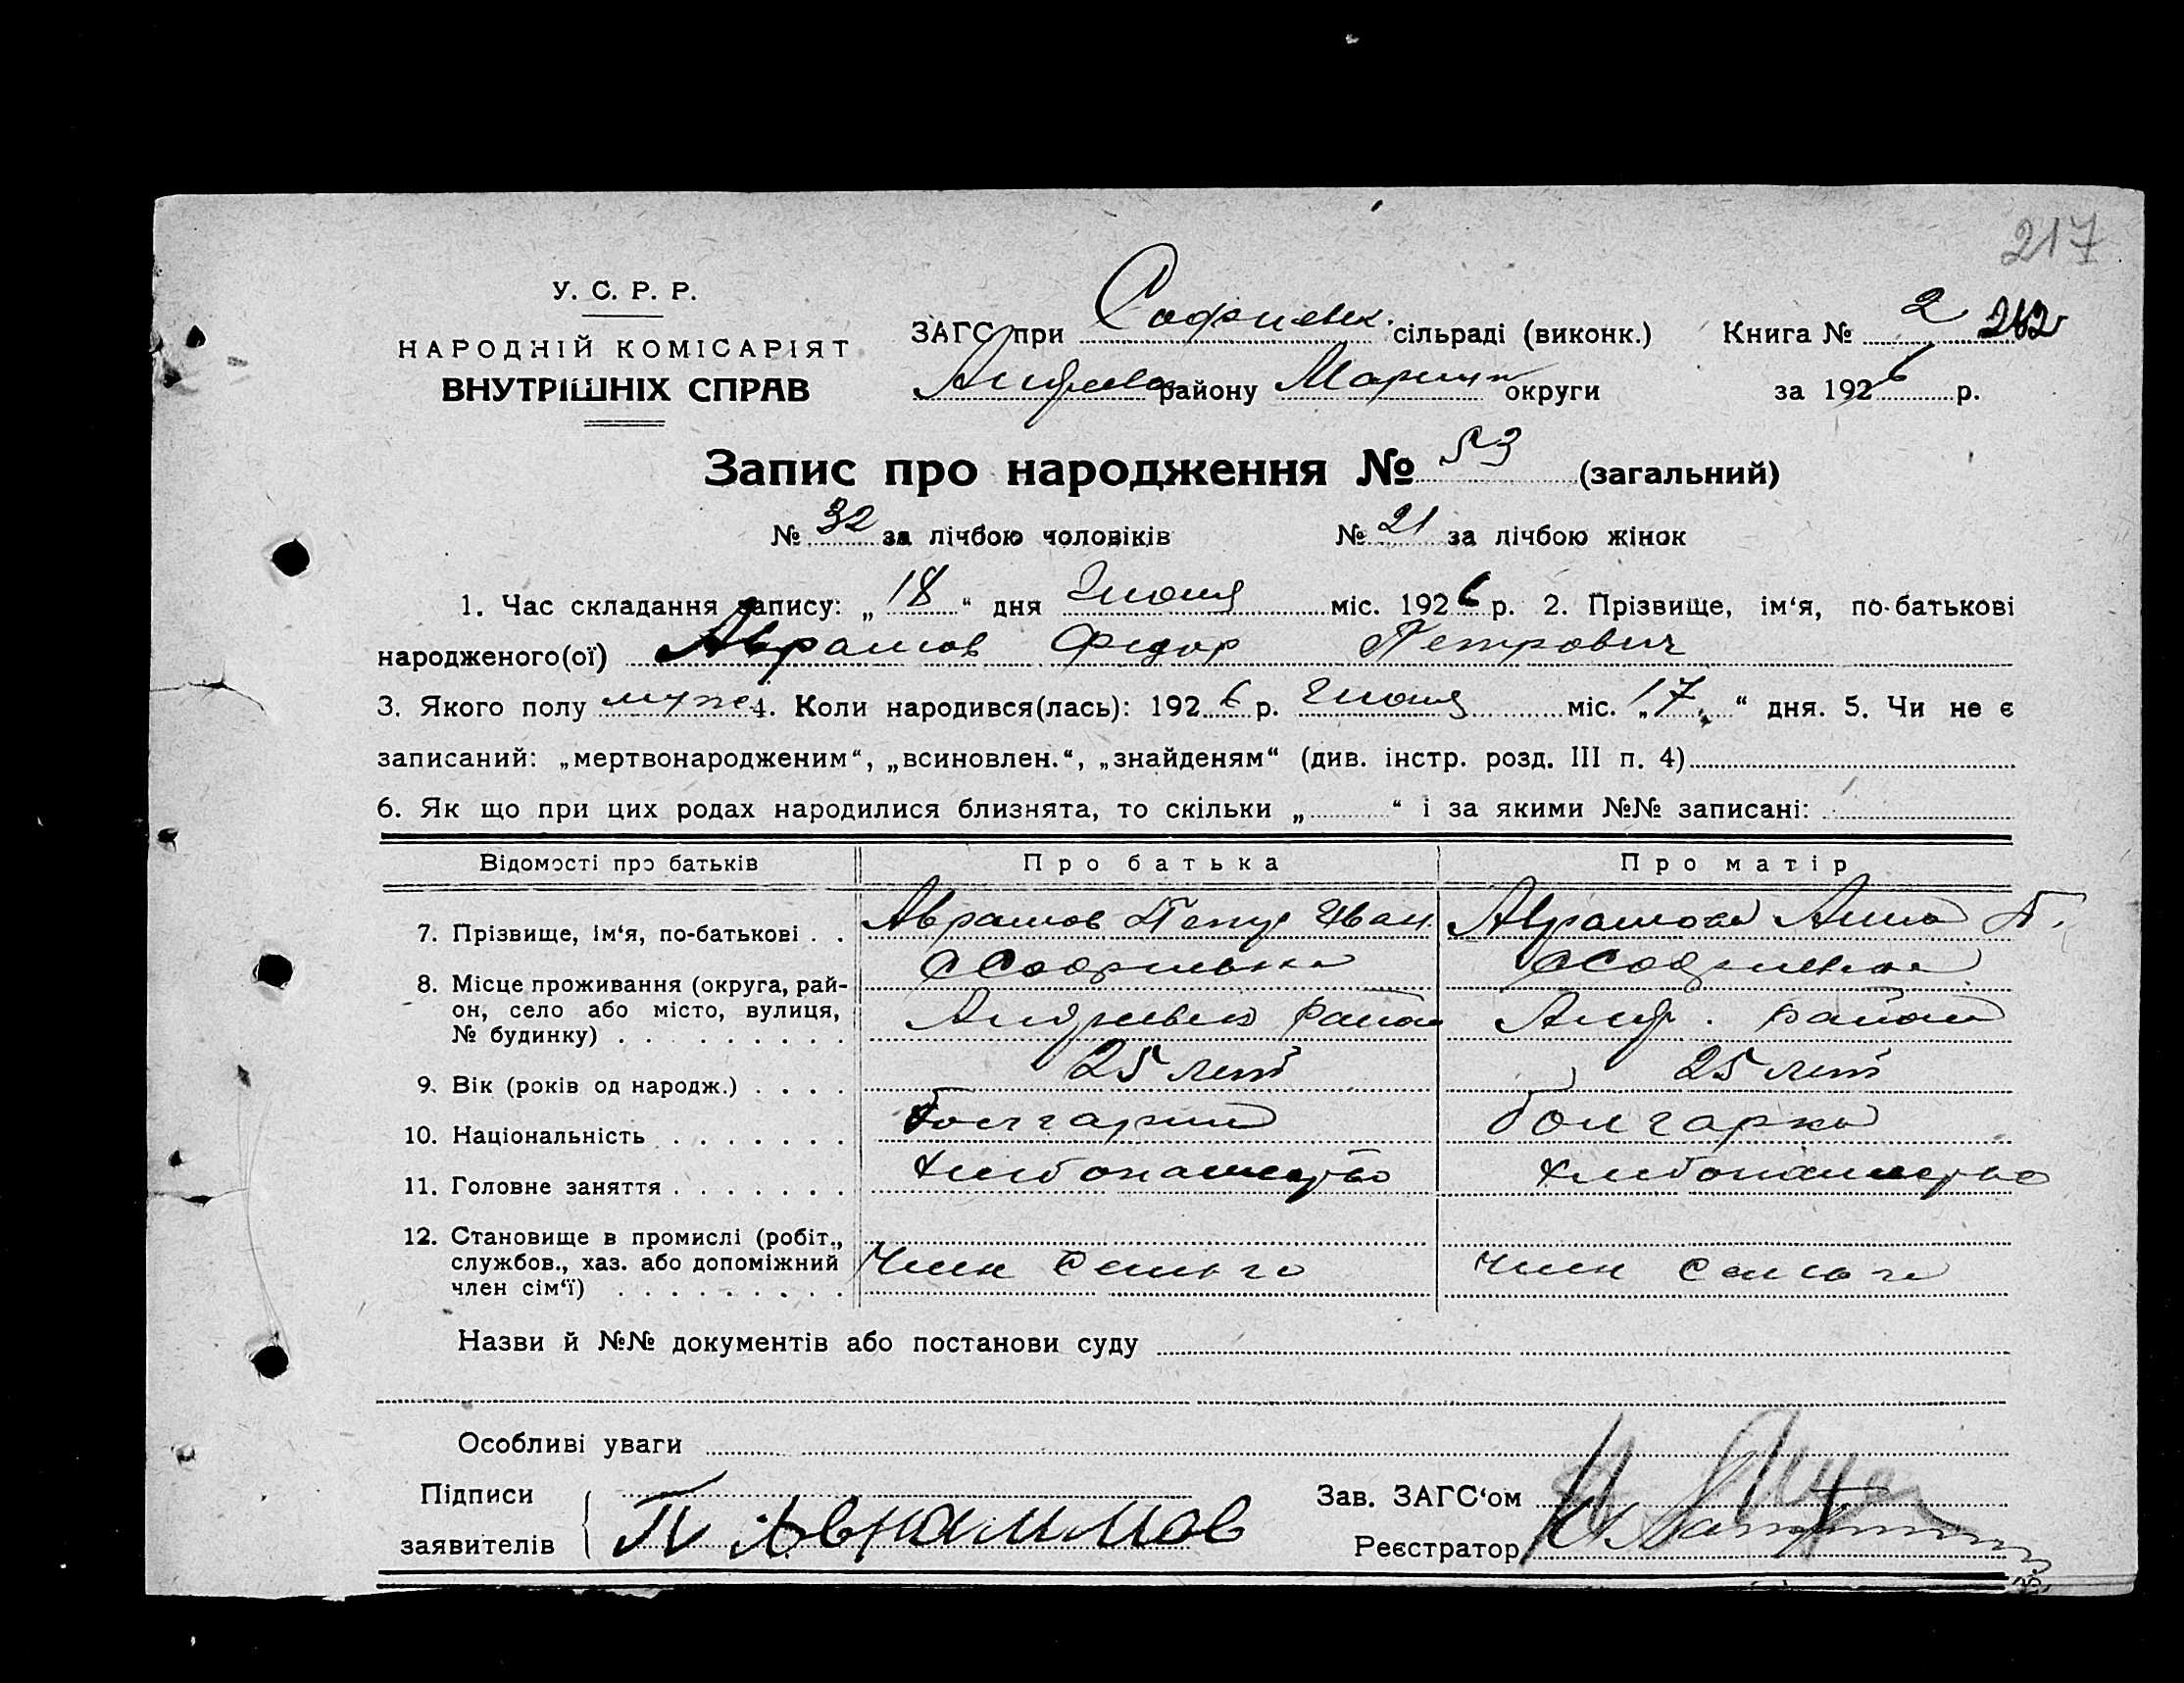 217
У. С. Р. Р.
НАРОДНІЙ КОМІСАРІЯТ
ВНУТРІШНІХ СПРАВ
ЗАГС при Софиевк. сільраді (виконк.) Книга № 2 262
Андреевск району Мариуп округи за 1926 р.
Запис про народження № 53 (загальний)
№ 32 за лічбою чоловіків № 21 за лічбою жінок
1. Час складання запису: „18“ дня Июня міс. 1926 р. 2. Прізвище, ім‘я, по-батькові
народженого(ої) Аврамов Федор Петрович
3. Якого полу муже 4. Коли народився(лась): 1926 р. Июня міс. „17“ дня. 5. Чи не є
записаний: „мертвонародженим“, „всиновлен.“, „знайденям“ (див. інстр. розд. III п. 4)
6. Як що при цих родах народилися близнята, то скільки „ “ і за якими №№ записані:
Відомості про батьків Про батька Про матір
7. Прізвище, ім‘я, по-батькові . . Аврамов Петр Иван. Аврамова Анна П.
8. Місце проживання (округа, рай- с Софиевка с Софиевка
он, село або місто, вулиця, Андреевск район Андр. район
№ будинку) . . . . . . . . .
9. Вік (років од народж.) . . . . 25 лет 25 лет
10. Національність . . . . . . . болгарин болгарка
11. Головне заняття . . . . . . . хлебопашество хлебопашество
12. Становище в промислі (робіт.,
службов., хаз. або допоміжний Член член
член сім‘ї) . . . . . . . . .
Назви й №№ документів або постанови суду
Особливі уваги
Підписи Зав. ЗАГС‘ом
заявителів П Аврамов Реєстратор